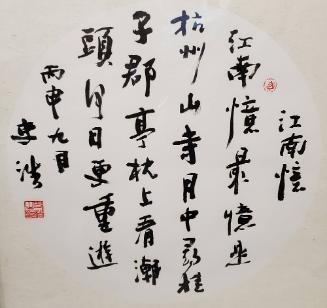 江南憶
江南憶最憶是
杭州山寺月中尋桂
子郡亭枕上看潮
頭何日更重遊
丙申九月